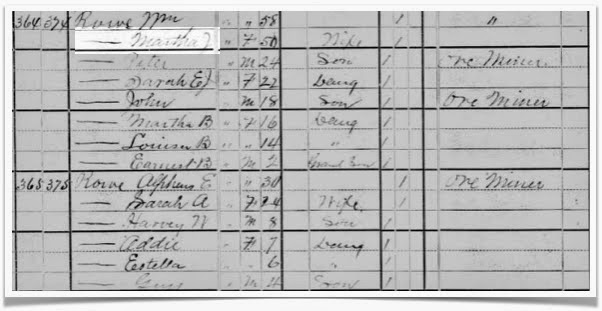 364 374 Rowe Wm " " 58 1 "
— Martha J " F 50 Wife 1
— Peter " M 24 Son 1 Ore Miner
— Sarah E J " F 22 Daug 1
— John " M 18 Son 1 Ore Miner
— Martha B " F 16 Daug 1
— Louisa B " " 14 " 1
— Earnest B " M 2 Grand Son 1
365 375 Rowe Alpheus E " " 30 1 Ore Miner
— Sarah A " F 24 Wife 1
— Harvey W " M 8 Son 1
— Addie " F 7 Daug 1
— Estella " " 6 " 1
— " M 4 Son 1